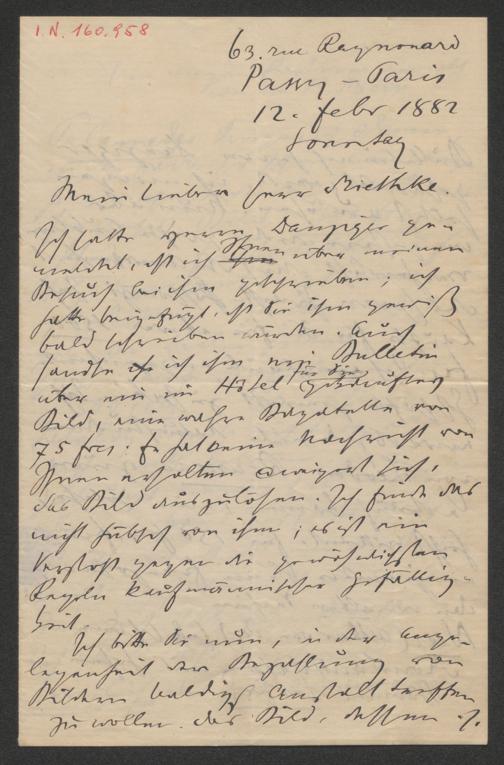 I.N. 160.958
63. rue Raynouard
Passy – Paris
12. febr 1882
Sonntag
Mein lieber Herr Miethke.
Ich hatte Herrn Danziger ge-
meldet, daß ich Ihnen über meinen
Besuch bei ihm geschrieben; ich
hatte beigefügt, daß Sie ihm gewiß
bald schreiben würden. Auch
sandte ich ihm ein Bulletin
über ein im Hôtel für Sie gekauftes
Bild, eine wahre Bagatelle von
75 frcs. Er hat keine Nachricht von
Ihnen erhalten & weigert sich,
das Bild auszulösen. Ich finde das
nicht hübsch von ihm; es ist ein
Verstoß gegen die gewöhnlichsten
Regeln kaufmännischer Gefällig-
keit.
Ich bitte Sie nun, in der Ange-
legenheit der Bezahlung von
Bildern baldigst Anstalt treffen
zu wollen. Das Bild, dessen